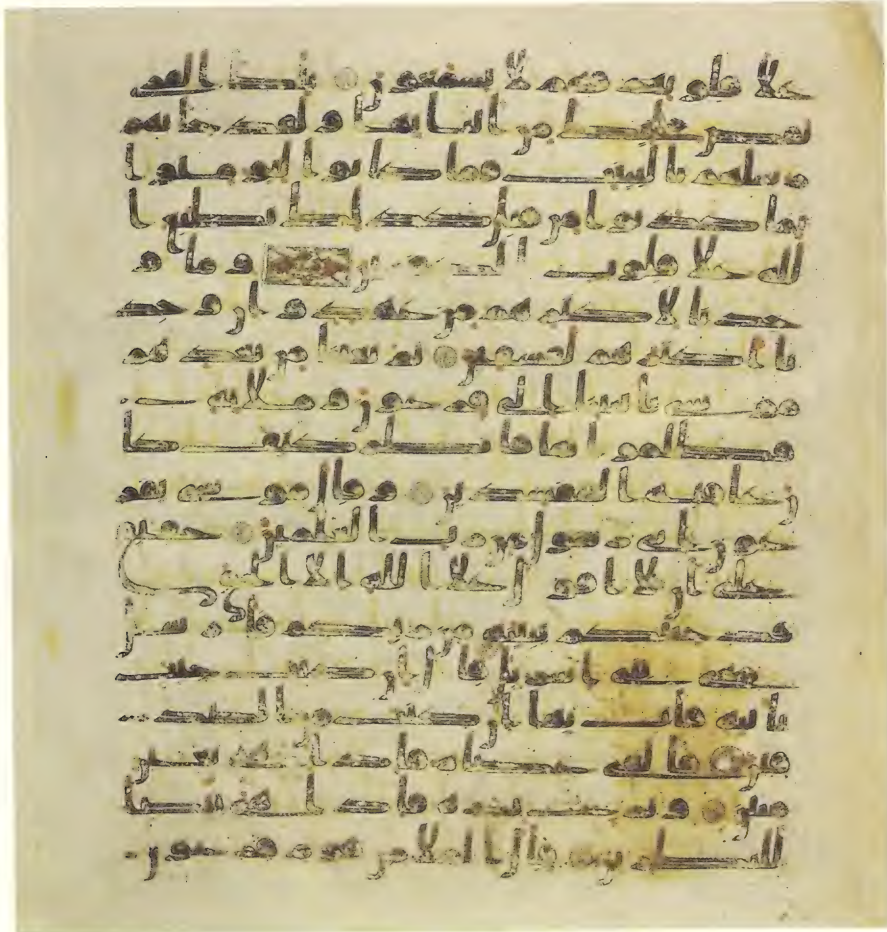 علا قلوبهم فهم لا يسمعون تلك القرى
نقص عليك من انبائها ولقد جاتهم
رسلهم بالبينت فما كانوا ليومنوا
بما كذبوا من قبل كذلك يطبع ا
لله علا قلوب الكفرين وما و
جدنا لاكثرهم من عهد وان وجد
نا اكثرهم لفسقين ثم بعثنا من بعدهم
موسى بايتنا الى فرعون وملايه
فظلموا بها فانظر كيف كا
ن عقبة المفسدين وقال موسى يفر
عون انى رسول من رب العلمين حقيق
على ان لا اقول علا الله الا الحق
قد جئتكم ببينة من ربكم فارسل
معى بنى اسريل قال ان كنت جئت
باية فات بها ان كنت من الصد
قين فالقى عصاه فاذا هى ثعبن
مبين ونزع يده فاذا هى بيضا
للنظرين قال الملا من قوم فرعون